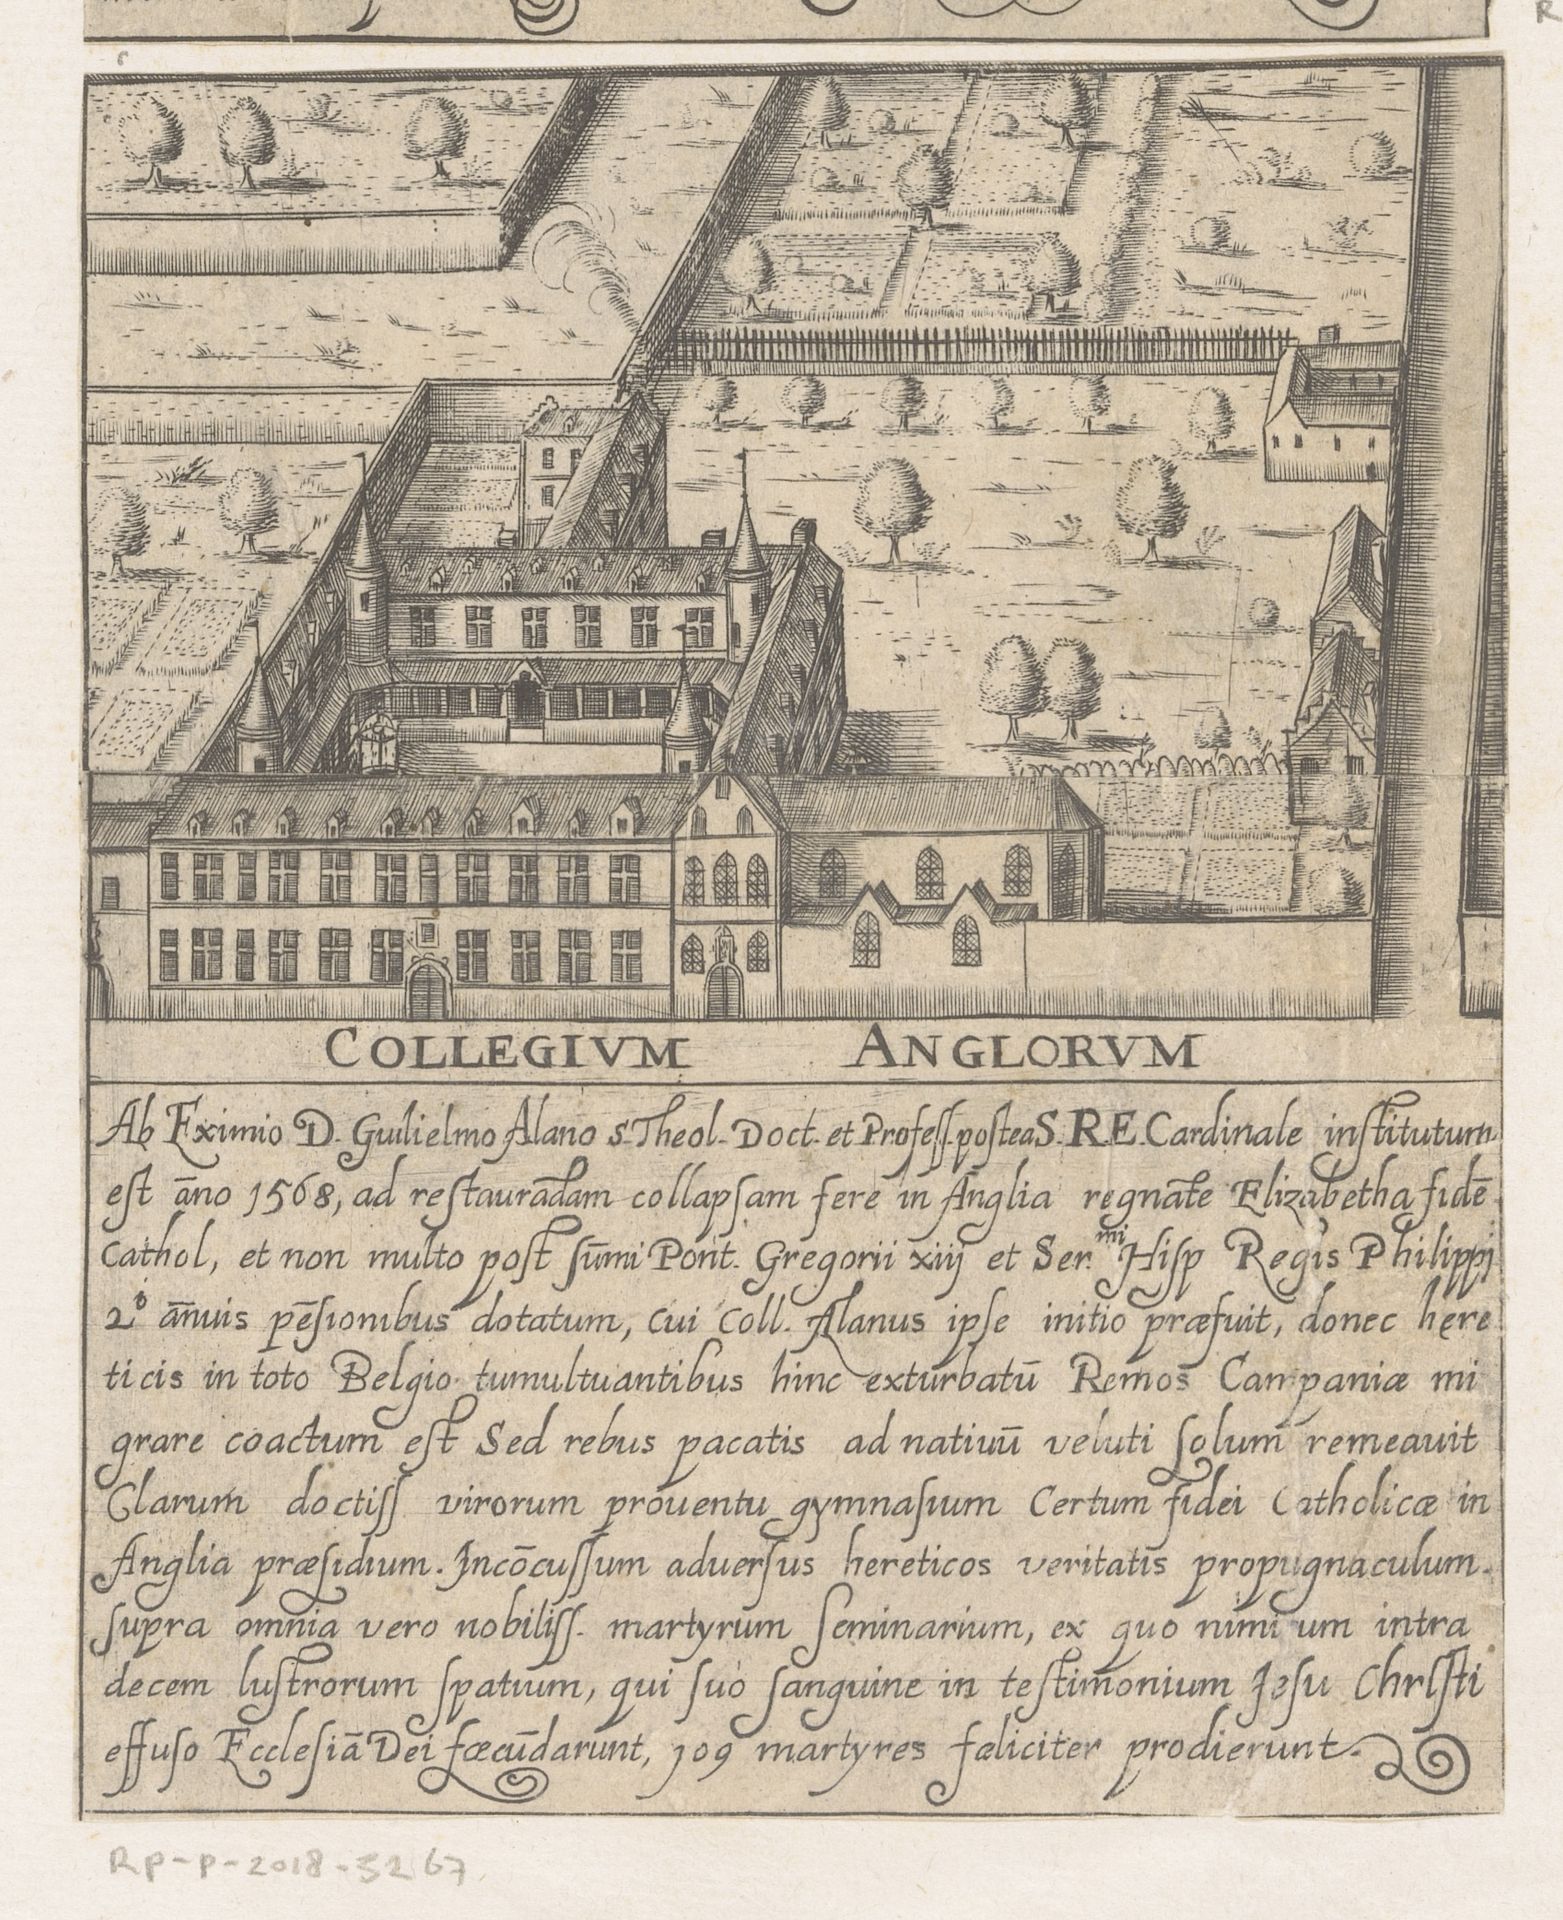 COLLEGIVM ANGLORVM
Ab Eximio D. Guilielmo Alano S. Theol. Doct. et Profeſſ. poſtea S. R. E. Cardinale inſtitutum
eſt āno 1568, ad reſtaurādam collapſam fere in Anglia regnāte Elizabetha fidē
Cathol, et non multo poſt ſūmi Pont. Gregorii xiij et Ser.mi Hiſp Regis Philippi
2º ānuis pēſionibus dotatum, cui Coll. Alanus ipſe initio præfuit, donec hęre
ticis in toto Belgio tumultuantibus hinc exturbatū Remos Campaniæ mi
grare coactum eſt Sed rebus pacatis ad natiuū veluti ſolum remeauit
Clarum doctiſſ virorum prouentu gymnaſium Certum fidei Catholicæ in
Anglia præſidium. Incōcuſſum aduerſus hereticos veritatis propugnaculum.
ſupra omnia vero nobiliſſ. martyrum ſeminarium, ex quo nimirum intra
decem luſtrorum ſpatium, qui ſuo ſanguine in teſtimonium Jeſu Chriſti
effuſo Eccleſiā Dei fœcūdarunt, 109 martyres fæliciter prodierunt.
RP-P-2018-3267